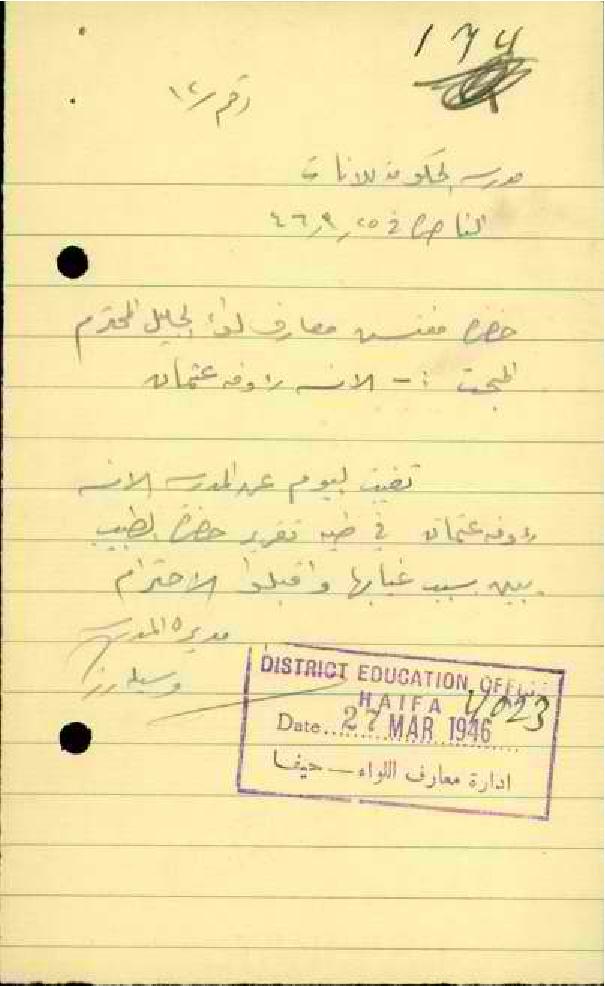 174
رقم / ١٤
مدرسة الحكومة للاناث
الناصرة في ٢٥ / ٣ / ٤٦
حضرة مفتش معارف لواء الجليل المحترم
المبحث :- الانسه رؤوفه عثمان
تغيبت اليوم عن المدرسه الانسه
رؤوفه عثمان في طيه تقرير حضرة الطبيب
يبين سبب غيابها واقبلوا الاحترام
مديرة المدرسه
DISTRICT EDUCATION OFFICE
HAIFA 4023
Date 27 MAR 1946
ادارة معارف اللواء — حيفا